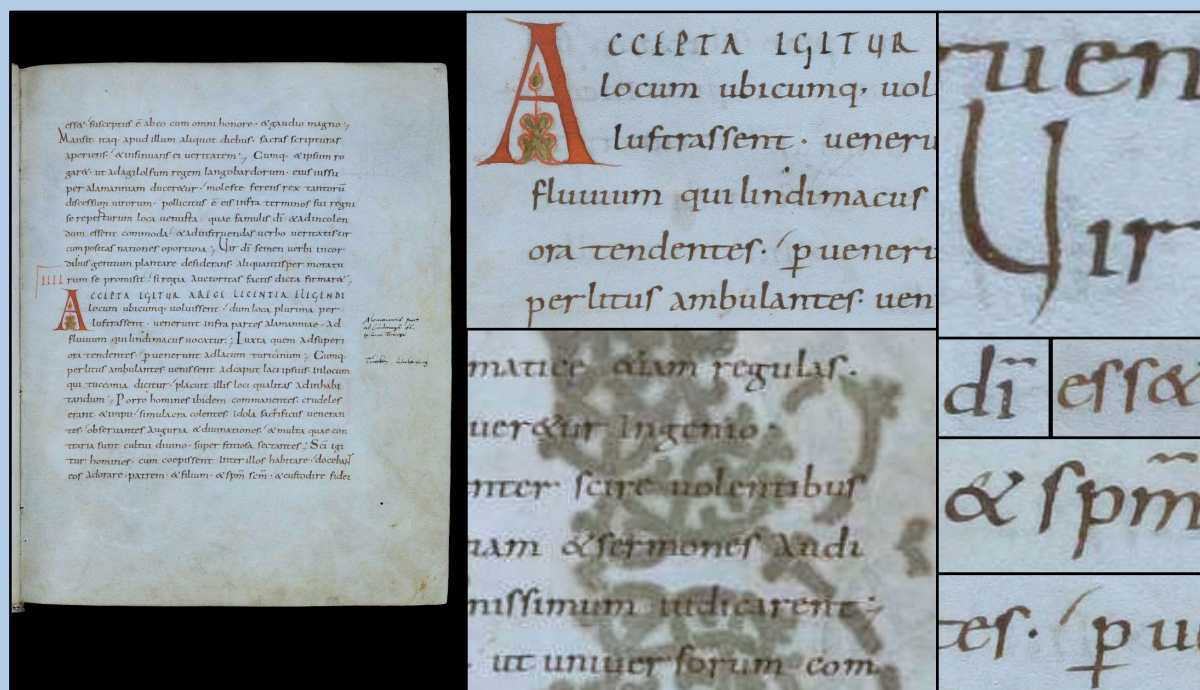 essé susceptus ē ab eo cum omni honore · & gaudio magno ;
Mansit itaq· apud illum aliquot diebus · sacras scripturas
aperiens · & insinuans ei ueritatem ; Cumq· & ipsum ro
gar& · ut ad agilolfum regem langobardorum · eius iussu
per alamanniam ducer&ur · moleste ferens rex tantorū
discessum uirorum · pollicitus ē eis infra terminos sui regni
se reperturum loca uenusta · quae famulis dī & ad incolen
dum essent commoda · & ad instruendas uerbo ueritatis cir
cumpositas nationes oportuna ; Uir dī semen uerbi in cor
dibus gentium plantare desiderans · aliquantisper moratu
IIII rum se promisit · si regia auctoritas factis dicta firmar& ·
ACCEPTA IGITUR A REGE LICENTIA ELIGENDI
locum ubicumq· uoluissent · dum loca plurima per
lustrassent · uenerunt infra partes alamanniae · ad
fluuium qui lindimacus uocatur ; Iuxta quem ad superi
ora tendentes · puenerunt ad lacum turicinum ; Cumq·
per litus ambulantes uenissent ad caput laci ipsius in locum
qui tucconia dicitur · placuit illis loci qualitas ad inhabi
tandum ; Porro homines ibidem commanentes · crudeles
erant & impii · simulacra colentes idola sacrificiis ueneran
tes · obseruantes auguria & diuinationes · & multa quae con
traria sunt cultui diuino · superstitiosa sectantes ; Scī igi
tur homines · cum coepissent inter illos habitare · docebant
eos adorare · patrem · & filium · & spm̄ scm̄ · & custodire fidei
ACCEPTA IGITUR
locum ubicumq· uol
lustrassent · ueneru
fluuium qui lindimacus
ora tendentes · pueneru
per litus ambulantes · uen
matice &iam regulas ·
uer&ur ingenio ·
nter scire uolentibus
nam & sermones audi
nissimum iudicarent ;
· ut uniuersorum com
ruen
Uir
dī
ess&
& spm̄
tes · pu